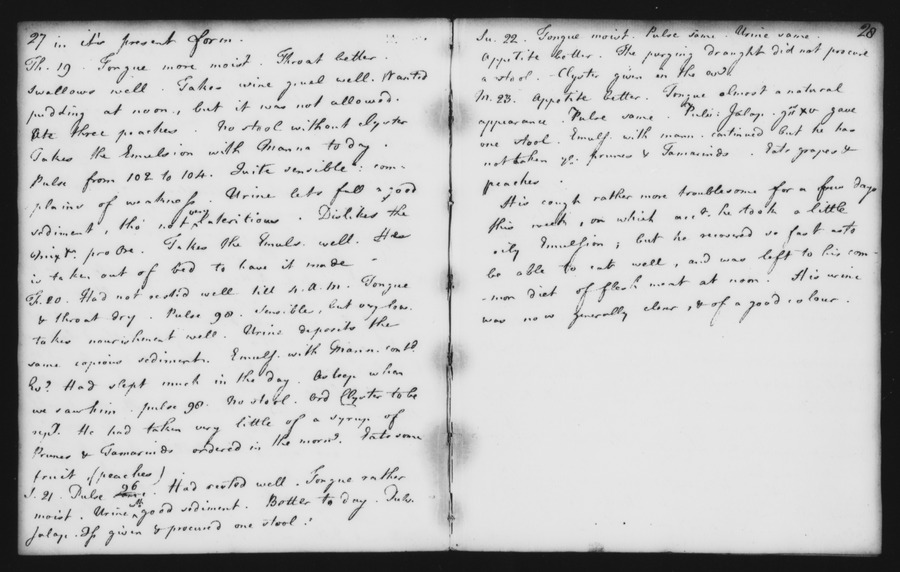 27 in it's present form.
Th. 19. Tongue more moist. Throat better.
Swallows well. Takes wine gruel well. Wanted
pudding at noon, but it was not allowed.
Ate three peaches. No stool without clyster
Takes the Emulsion with Manna to day.
Pulse from 102 to 104. Quite sensible: com-
plains of weakness. Urine lets fall a good
sediment, tho not very lateritious. Dislikes the
pro Re. Takes the Emuls. well. He
is taken out of bed to have it made
F. 20. Had not rested well till 4. A.M. Tongue
& throat dry. Pulse 98. Sensible, but very low.
takes nourishment well. Urine deposits the
same copious sediments. Emuls. with Mann. contd.
Ev? Had slept much in the day. Asleep when
we saw him. pulse 98. No stool. ord Clyster to be
repd. He had taken very little of a syrup of
Prunes & Tamarinds ordered in the morng. Eats some
fruit (peaches)
S. 21. Pulse 96. Had rested well. Tongue rather
moist. Urine good sediment. Better to day. Pulv.
Jalap. given & procured one stool.
28
Su. 22. Tongue moist. Pulse same. Urine same.
Appetite better. The purging draught did not procure
a stool. Clyster given in the
M. 23. Appetite better. Tongue almost a natural
appearance Pulse same. Pulv: Jalap. gr xv gave
one stool. Emuls. with mann. continued but he has
not taken ye. prunes & Tamarinds. Eats grapes &
peaches.
His cough rather more troublesome for a few days
this week, on which acct. he took a little
oily Emulsion; but he recovered so fast as to
be able to eat well, and was left to his com-
-mon diet of flesh meat at noon. His urine
was now generally clear, & of a good colour.